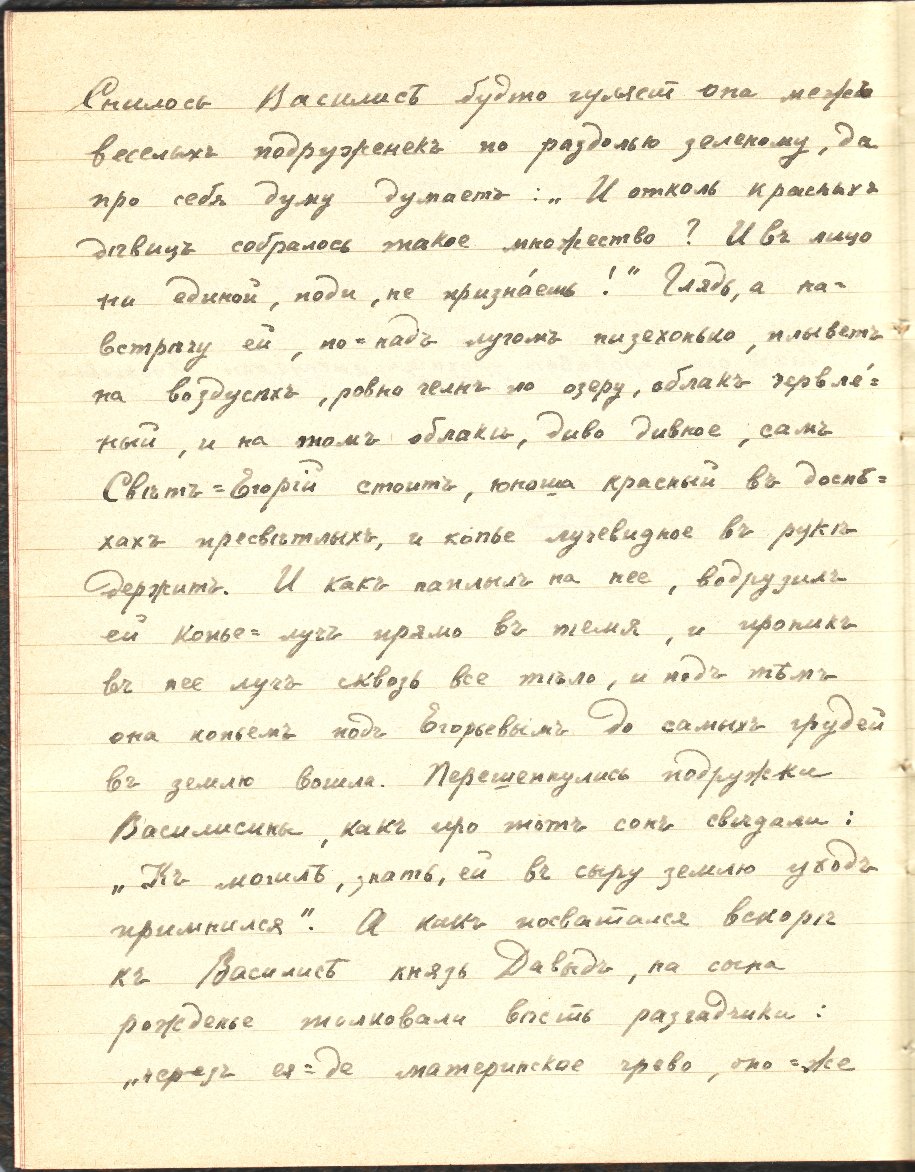 Снилось Василисѣ будто гуляетъ она межъ
веселыхъ подруженекъ по раздолью зеленому, да
про себя думу думаетъ: „И отколь красныхъ
дѣвицъ собралось такое множество? И въ лицо
ни единой, поди, не призна́ешь!" Глядь, а на=
встрѣчу ей, по=надъ лугомъ низехонько, плыветъ
на воздусѣхъ, ровно челнъ по озеру, облакъ червле́=
ный, и на томъ облакѣ, диво дивное, самъ
Свѣтъ=Егорій стоитъ, юноша красный въ доспѣ=
хахъ пресвѣтлыхъ, и копье лучевидное въ рукѣ
держитъ. И какъ наплылъ на нее, водрузилъ
ей копье=лучъ прямо въ темя, и проникъ
въ нее лучъ сквозь все тѣло, и подъ тѣмъ
она копьемъ подъ Егорьевымъ до самыхъ грудей
въ землю вошла. Перешепнулись подружки
Василисины, какъ про тотъ сонъ свѣдали:
„Къ могилѣ, знать, ей въ сыру землю уходъ
примнился". А какъ посватался вскорѣ
къ Василисѣ князь Давыдъ, на сына
рожденье толковали вѣсть разгадчики:
„черезъ ея=де материнское чрево, оно=же